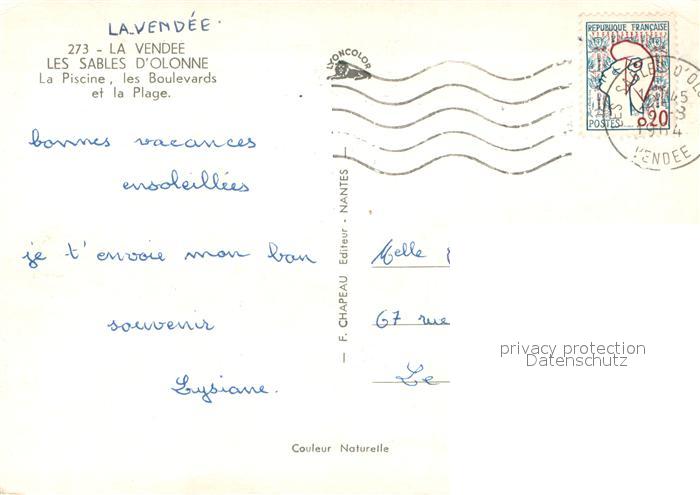 LA VENDÉE
273 - LA VENDEE
LES SABLES D'OLONNE
La Piscine, les Boulevards
et la Plage.
bonnes vacances
ensoleillées
je t'envoie mon bon
souvenir
Lysiane.
LYONCOLOR
— F. CHAPEAU Editeur - NANTES —
REPUBLIQUE FRANÇAISE
0,20
POSTES
VENDEE
Melle
67 rue
Le
privacy protection
Datenschutz
Couleur Naturelle